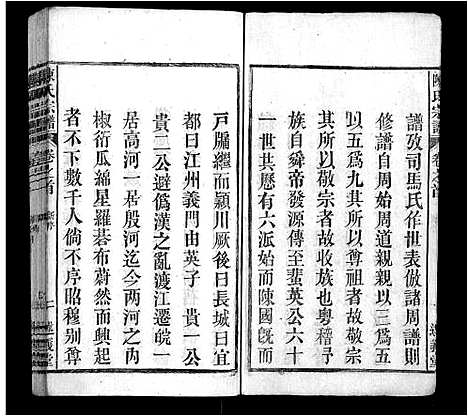 陳氏宗譜 卷之首
譜攷司馬氏作世表倣諸周譜則
修譜自周始周道親親以三爲五
以五爲九其所以尊祖者故敬宗
族自舜帝發源傳至蜚英公六十
一世共歷有六派始而陳國旣而
戸牖繼而潁川厥後曰長城曰宜
都曰江州義門由英子 貴一公
貴二公避僞漢之亂渡江遷皖一
居高河一居殷河迄今两河之內
椒衍瓜綿星羅碁布蔚然而興起
者不下數千人倘不序昭穆别尊
陳氏宗譜 卷之首